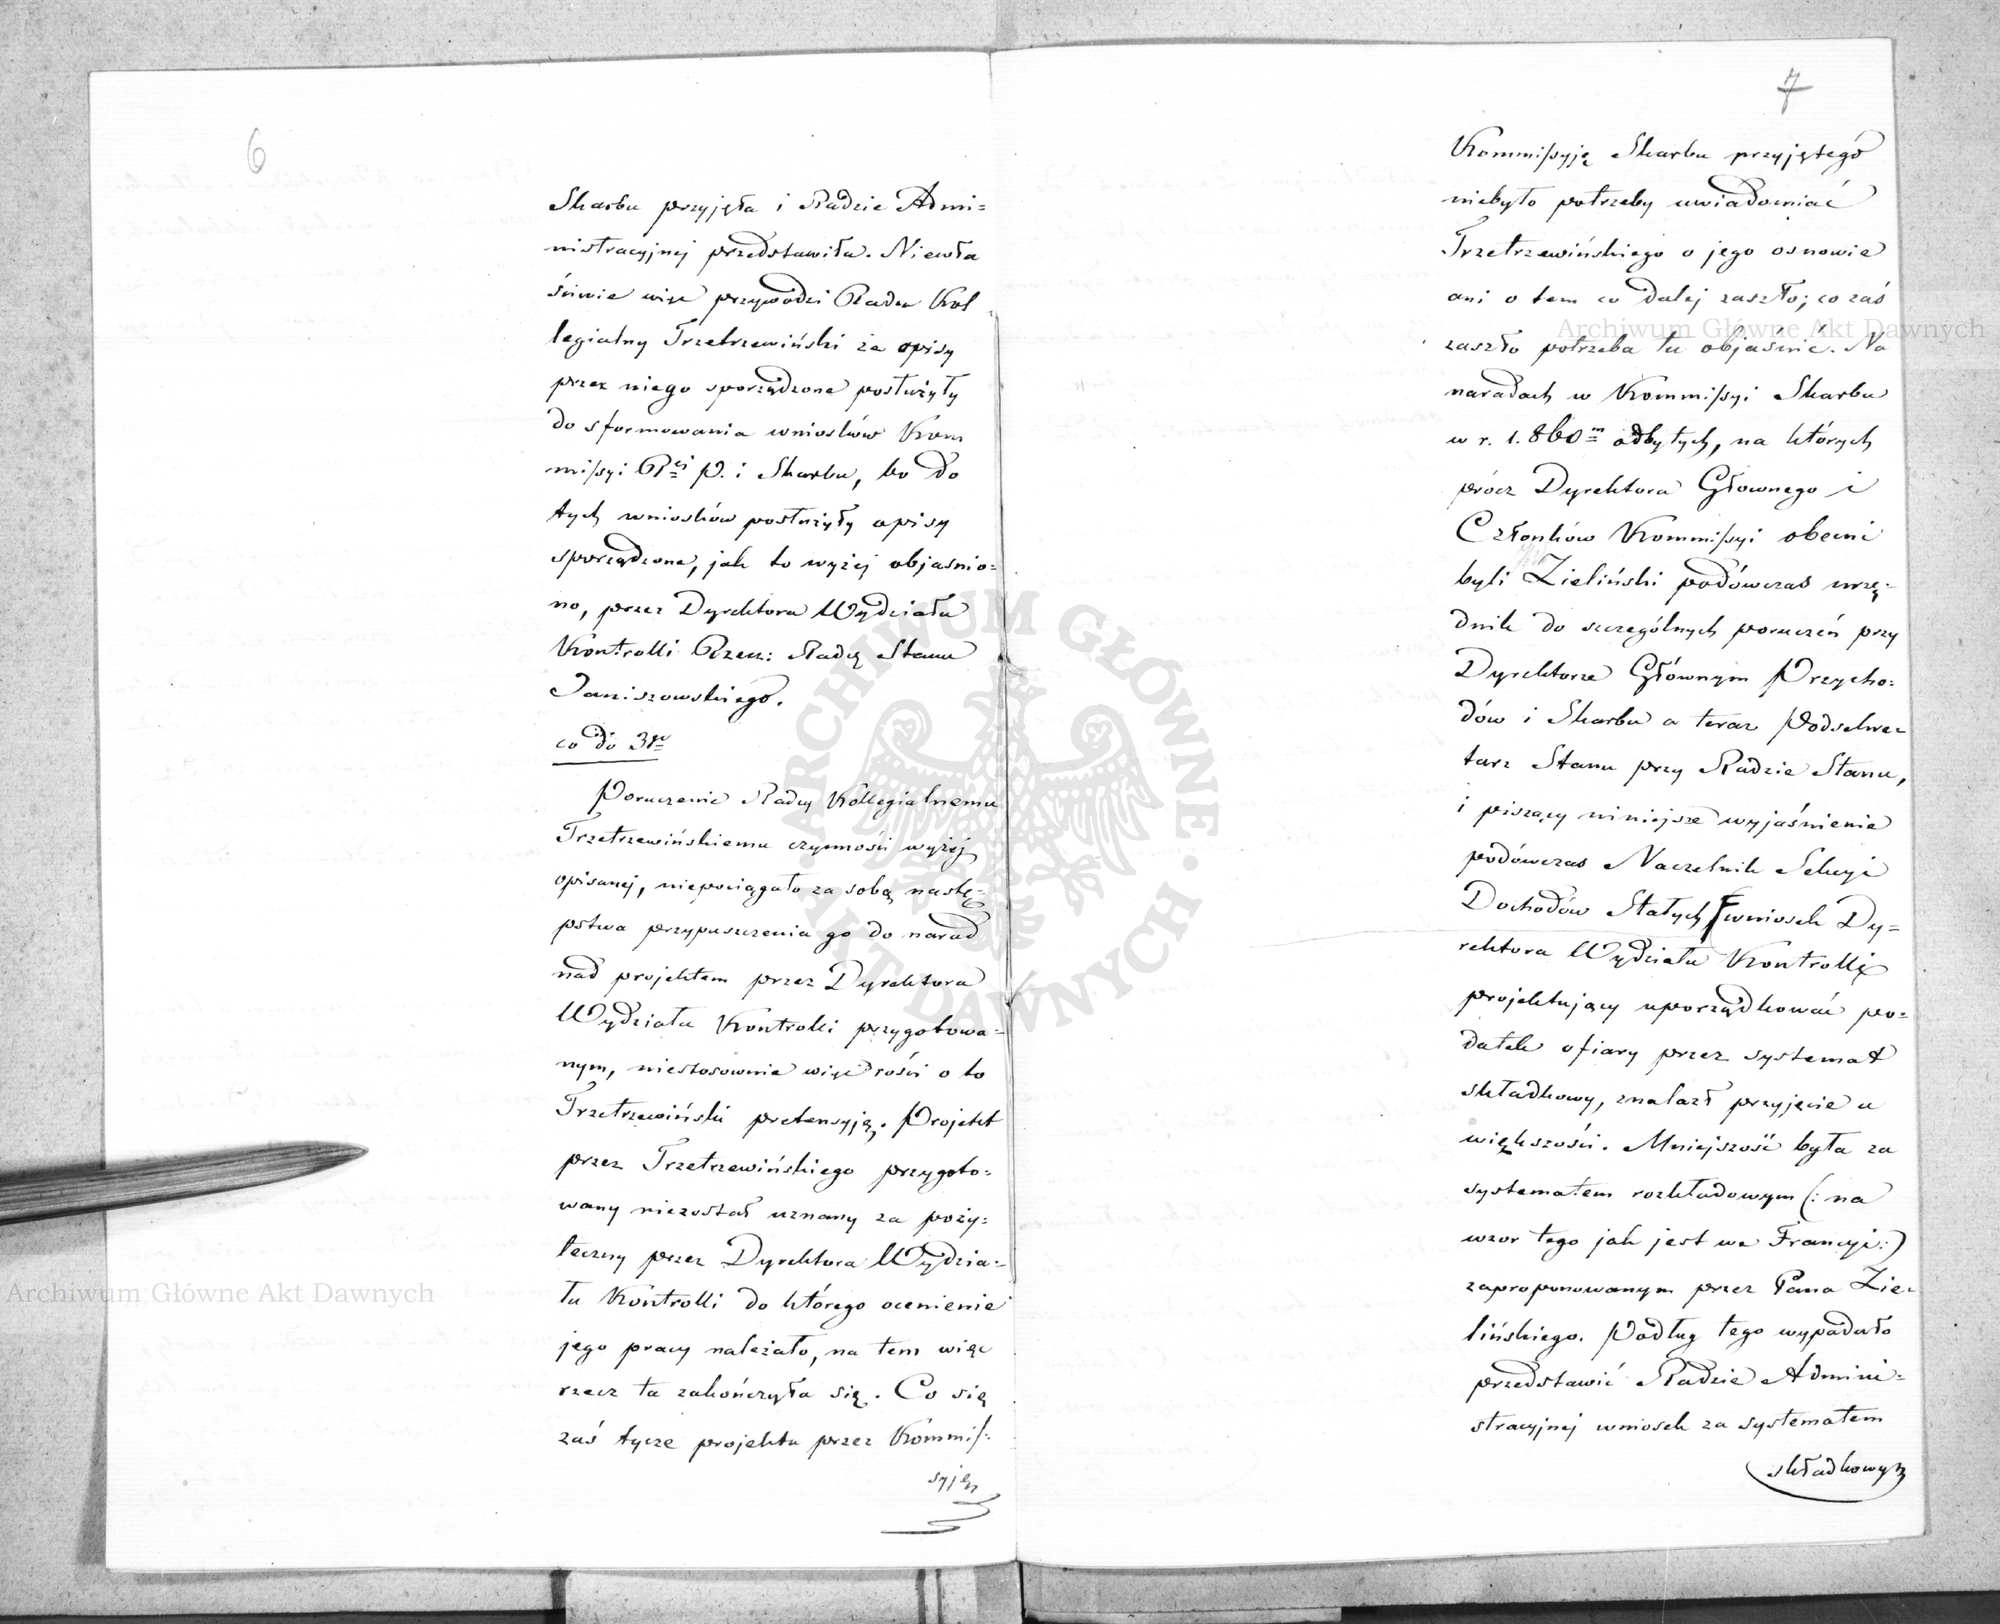 6
Skarbu przyjęła i Radzie Admi=
nistracyjnej przedstawiła. Niewła
ściwie więc przywodzi Radca Kol
legialny Trzetrzewiński że opisy
przez niego sporządzone posłużyły
do sformowania wniosków Kom
missyi Rz̲ej P. i Skarbu, bo do
tych wniosków posłużyły opisy
sporządzone, jak to wyżej objaśnio=
no, przez Dyrektora Wydziału
Kontrolli Rzecz: Radcę Stanu
Janiszowskiego.
co do 3go
Poruczenie Radcy Kollegialnemu
Trzetrzewińskiemu czynności wyżej
opisanej, niepociągało za sobą nastę=
pstwa przypuszczenia go do narad
nad projektem przez Dyrektora
Wydziału Kontrolli przygotowa=
nym, niestosownie więc rości o to
Trzetrzewiński pretensyję. Projekt
przez Trzetrzewińskiego przygoto=
wany niezostał uznany za poży=
teczny przez Dyrektora Wydzia=
łu Kontrolli do którego ocenienie
jego pracy należało, na tem więc
rzecz ta zakończyła się. Co się
zaś tycze projektu przez Kommis=
syję
7
Kommissyję Skarbu przyjętego
niebyło potrzeby uwiadomiać
Trzetrzewińskiego o jego osnowie
ani o tem co dalej zaszło; co zaś
zaszło potrzeba tu objaśnić. Na
naradach w Kommissyi Skarbu
w r. 1860m odbytych, na których
prócz Dyrektora Głównego i
Członków Kommissyi obecni
byli Zieliński podówczas urzę=
dnik do szczególnych poruczeń przy
Dyrektorze Głównym Przycho=
dów i Skarbu a teraz Podsekre=
tarz Stanu przy Radzie Stanu,
i piszący niniejsze wyjaśnienie
podówczas Naczelnik Sekcyi
Dochodów Stałych wniosek Dy=
rektora Wydziału Kontrolli
projektujący uporządkować po=
datek ofiary przez systemat
składkowy, znalazł przyjęcie u
większości. Mniejszość była za
systematem rozkładowym (: na
wzor tego jak jest we Francyi :)
zaproponowanym przez Pana Zie=
lińskiego. Podług tego wypadało
przedstawić Radzie Admini=
stracyjnej wniosek za systematem
składkowym
Archiwum Główne Akt Dawnych
Archiwum Główne Akt Dawnych
ARCHIWUM GŁÓWNE · AKT DAWNYCH ·